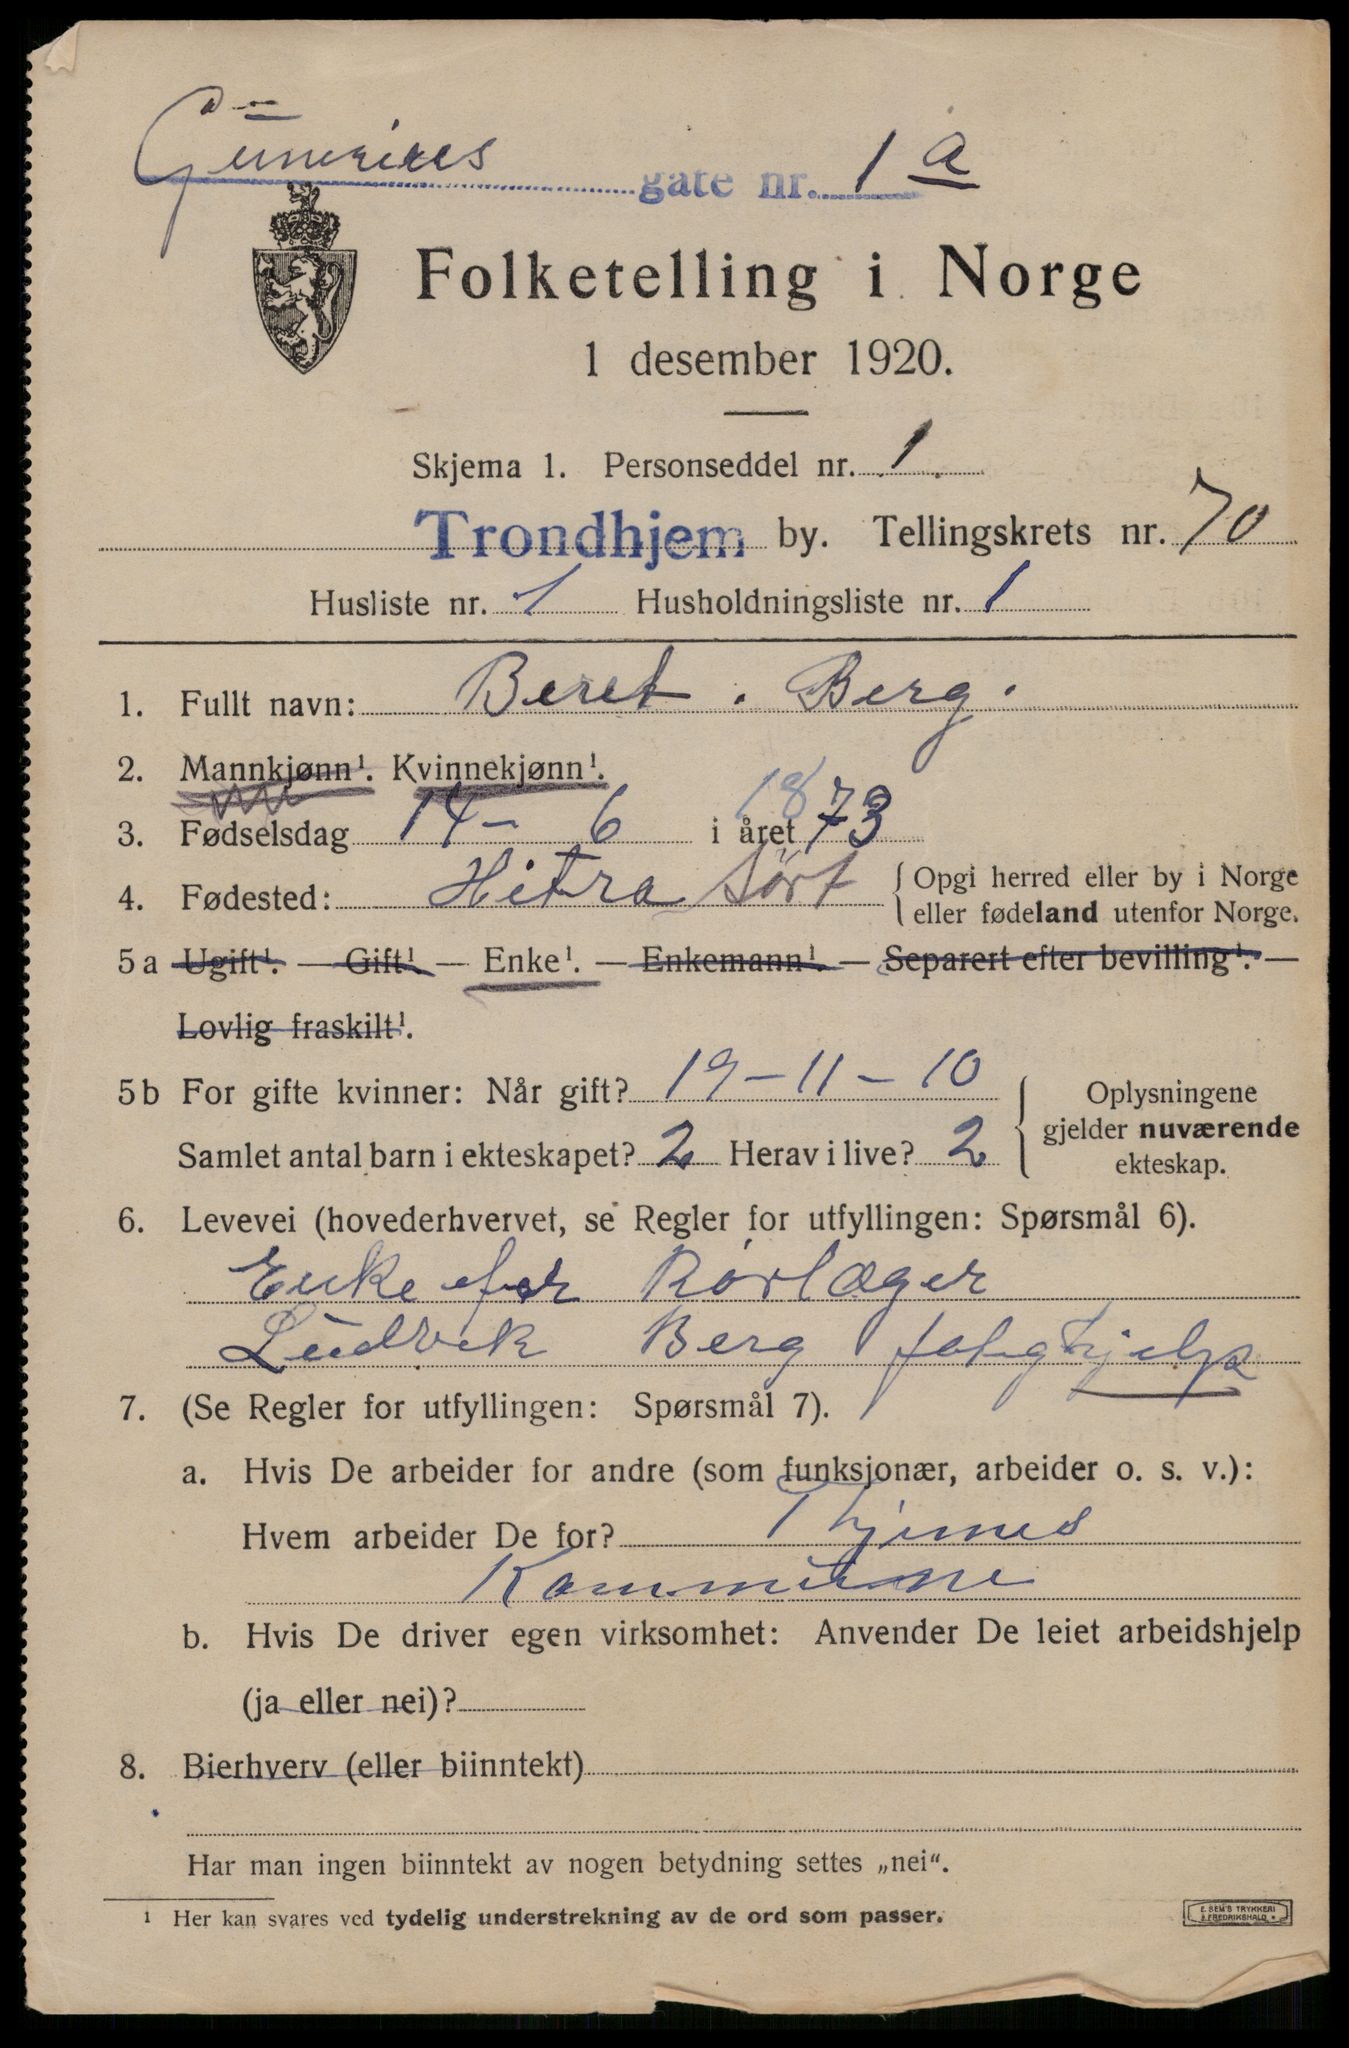 gate nr. 1 a
Folketelling i Norge
1 desember 1920.
Skjema 1. Personseddel nr. 1.
Trondhjem by. Tellingskrets nr. 70
Husliste nr. 1 Husholdningsliste nr. 1
1. Fullt navn: Beret. Berg.
2. Mannkjønn¹. Kvinnekjønn¹.
3. Fødselsdag 14 - 6 i året 1873
4. Fødested: Hitra { Opgi herred eller by i Norge
eller fødeland utenfor Norge.
5a Ugift¹. — Gift¹ — Enke¹. — Enkemann¹. — Separert efter bevilling¹. —
Lovlig fraskilt¹.
5b For gifte kvinner: Når gift? 19-11-10 { Oplysningene
gjelder nuværende
ekteskap.
Samlet antal barn i ekteskapet? 2 Herav i live? 2
6. Levevei (hovederhvervet, se Regler for utfyllingen: Spørsmål 6).
Enke efter Rørlæger
Ludvik Berg
7. (Se Regler for utfyllingen: Spørsmål 7).
a. Hvis De arbeider for andre (som funksjonær, arbeider o. s. v.):
Hvem arbeider De for? Thjems
Kommune
b. Hvis De driver egen virksomhet: Anvender De leiet arbeidshjelp
(ja eller nei)?
8. Bierhverv (eller biinntekt)
Har man ingen biinntekt av nogen betydning settes „nei“.
¹ Her kan svares ved tydelig understrekning av de ord som passer.
E. SEM'S TRYKKERI
FREDRIKSHALD